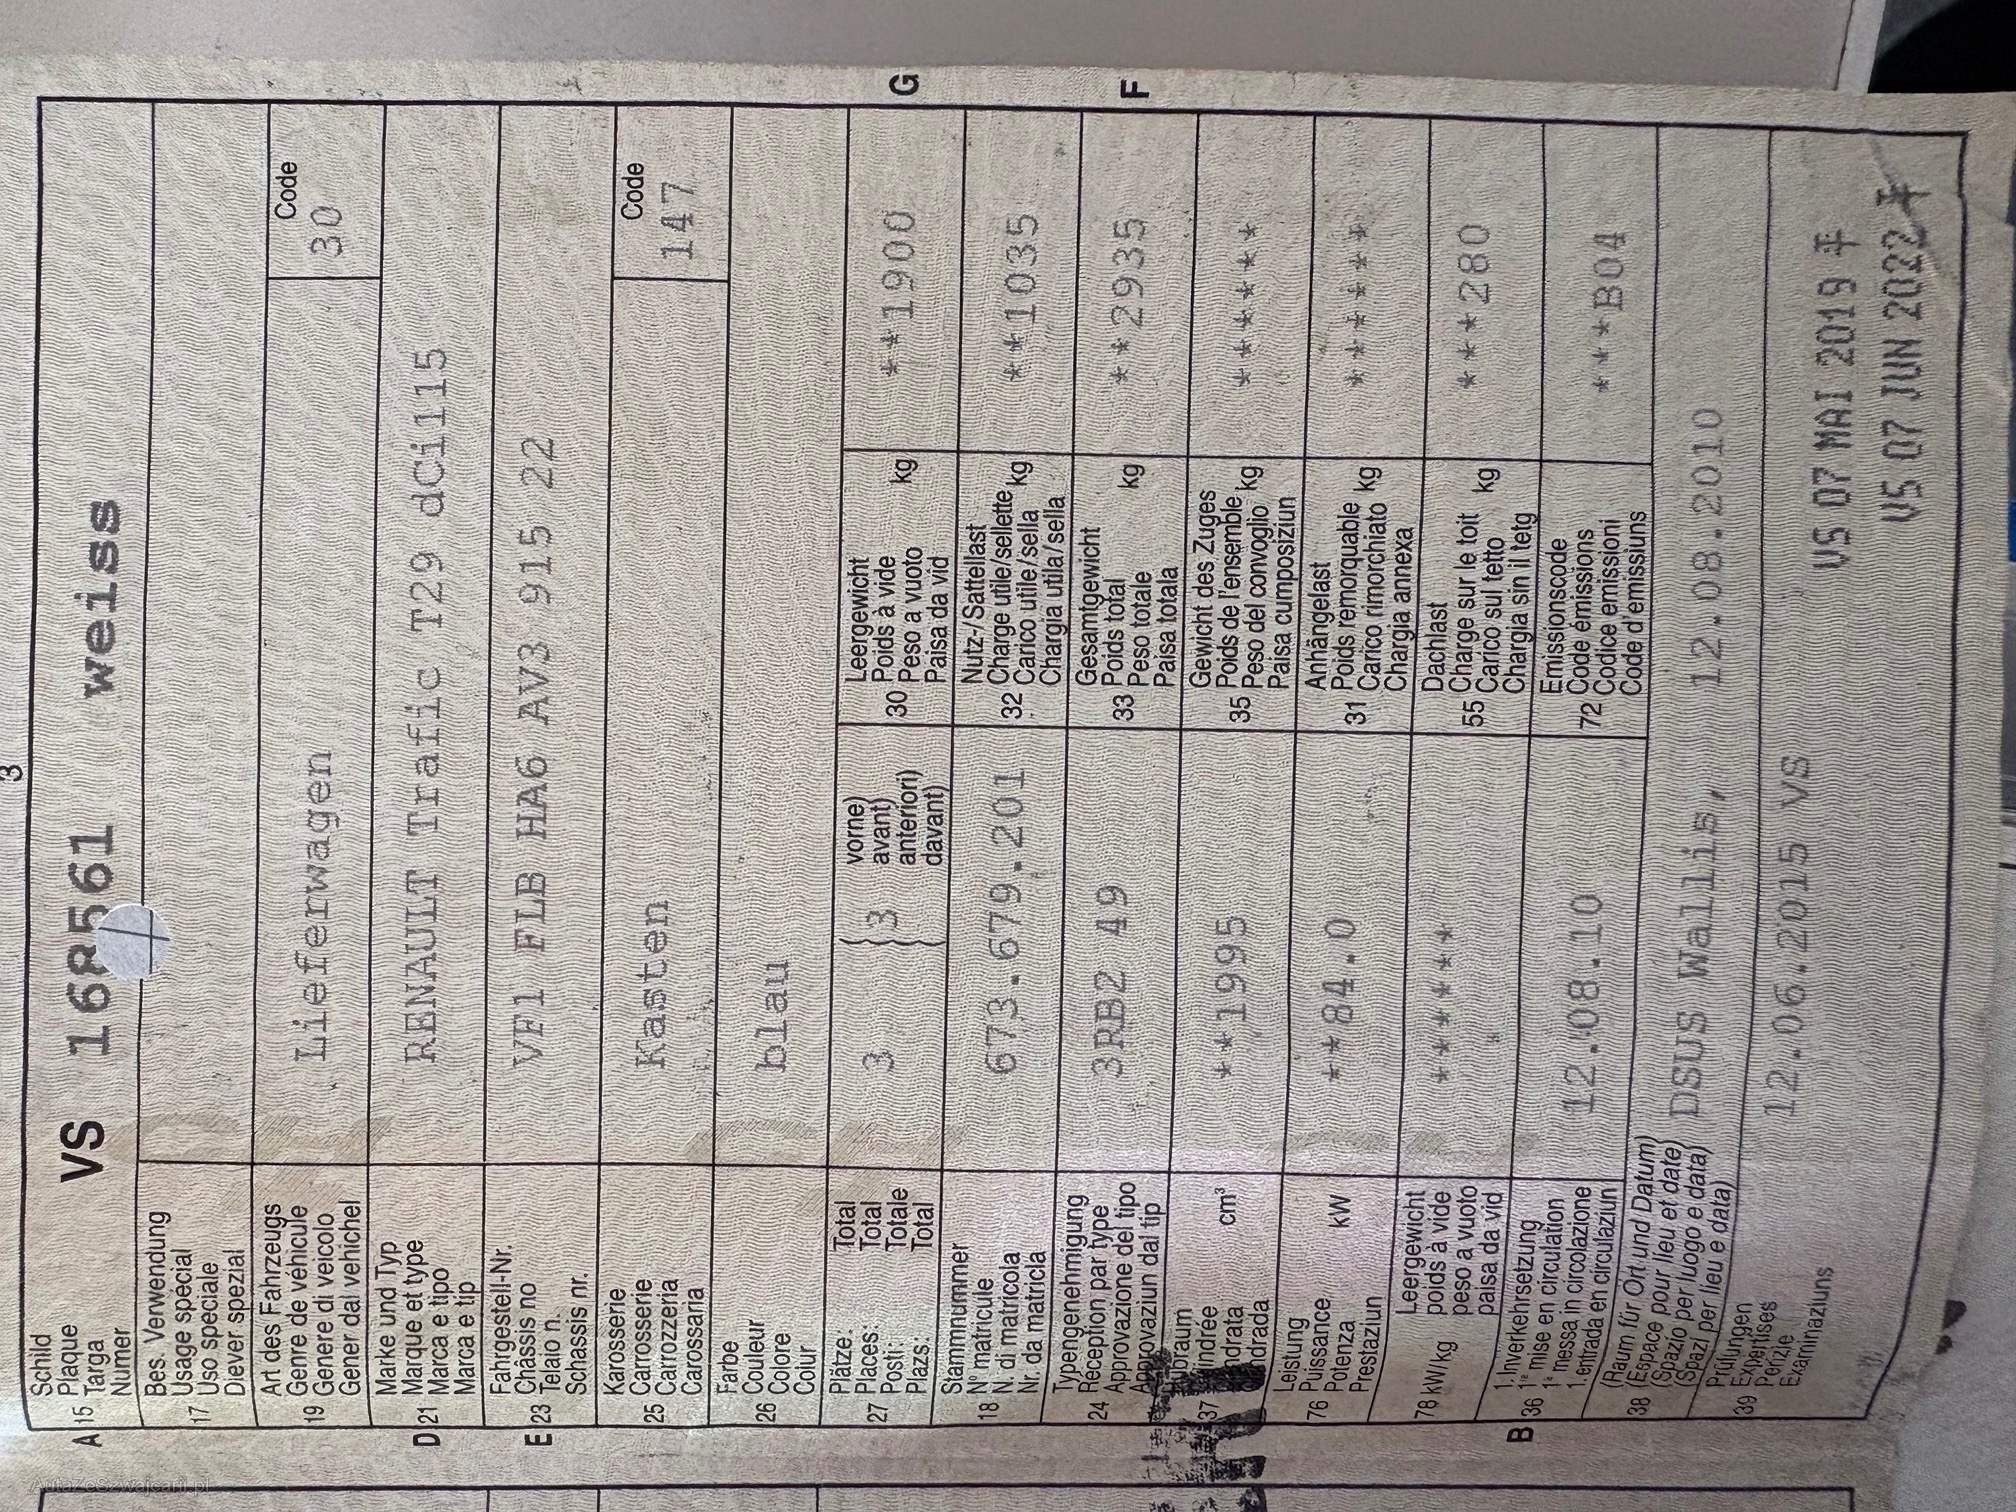 3
A 15 Schild
Plaque
Targa
Numer
VS 168561 weiss
17 Bes. Verwendung
Usage spécial
Uso speciale
Diever spezial
19 Art des Fahrzeugs
Genre de véhicule
Genere di veicolo
Gener dal vehichel
Lieferwagen
Code
30
D 21 Marke und Typ
Marque et type
Marca e tipo
Marca e tip
RENAULT Trafic T29 dCi115
E 23 Fahrgestell-Nr.
Châssis no
Telaio n.
Schassis nr.
VF1 FLB HA6 AV3 915 22
25 Karosserie
Carrosserie
Carrozzeria
Carossaria
Kasten
Code
147
26 Farbe
Couleur
Colore
Colur
blau
27 Plätze: Total
Places: Total
Posti: Totale
Plazs.: Total
3 { 3 vorne)
avant)
anteriori)
davant)
30 Leergewicht
Poids à vide
Peso a vuoto
Paisa da vid
kg **1900 G
18 Stammnummer
N° matricule
N. di matricola
Nr. da matricla
673.679.201
32 Nutz-/Sattellast
Charge utile/sellette
Carico utile/sella
Chargia utila/sella
kg ***1035
24 Typengenehmigung
Réception par type
Approvazione del tipo
Approvaziun dal tip
3RB2 49
33 Gesamtgewicht
Poids total
Peso totale
Paisa totala
kg **2935 F
37 cm³
**1995
35 Gewicht des Zuges
Poids de l'ensemble
Peso del convoglio
Paisa cumposiziun
kg *******
76 Leistung
Puissance
Potenza
Prestaziun
kW **84.0
31 Anhängelast
Poids remorquable
Carico rimorchiato
Chargia annexa
kg *******
78 kW/kg Leergewicht
poids à vide
peso a vuoto
paisa da vid
*******
55 Dachlast
Charge sur le toit
Carico sul tetto
Chargia sin il tetg
kg ****280
B 36 1. Inverkehrsetzung
1re mise en circulation
1a messa in circolazione
1. entrada en circulaziun
12.08.10
72 Emissionscode
Code émissions
Codice emissioni
Code d'emissiuns
****B04
38 (Raum für Ort und Datum)
(Espace pour lieu et date)
(Spazio per luogo e data)
(Spazi per lieu e data)
DSUS Wallis, 12.08.2010
39 Prüfungen
Expertises
Perizie
Examinaziuns
12.06.2015 VS
VS 07 MAI 2019
VS 07 JUN 2022
AutaZeSzwajcarii.pl